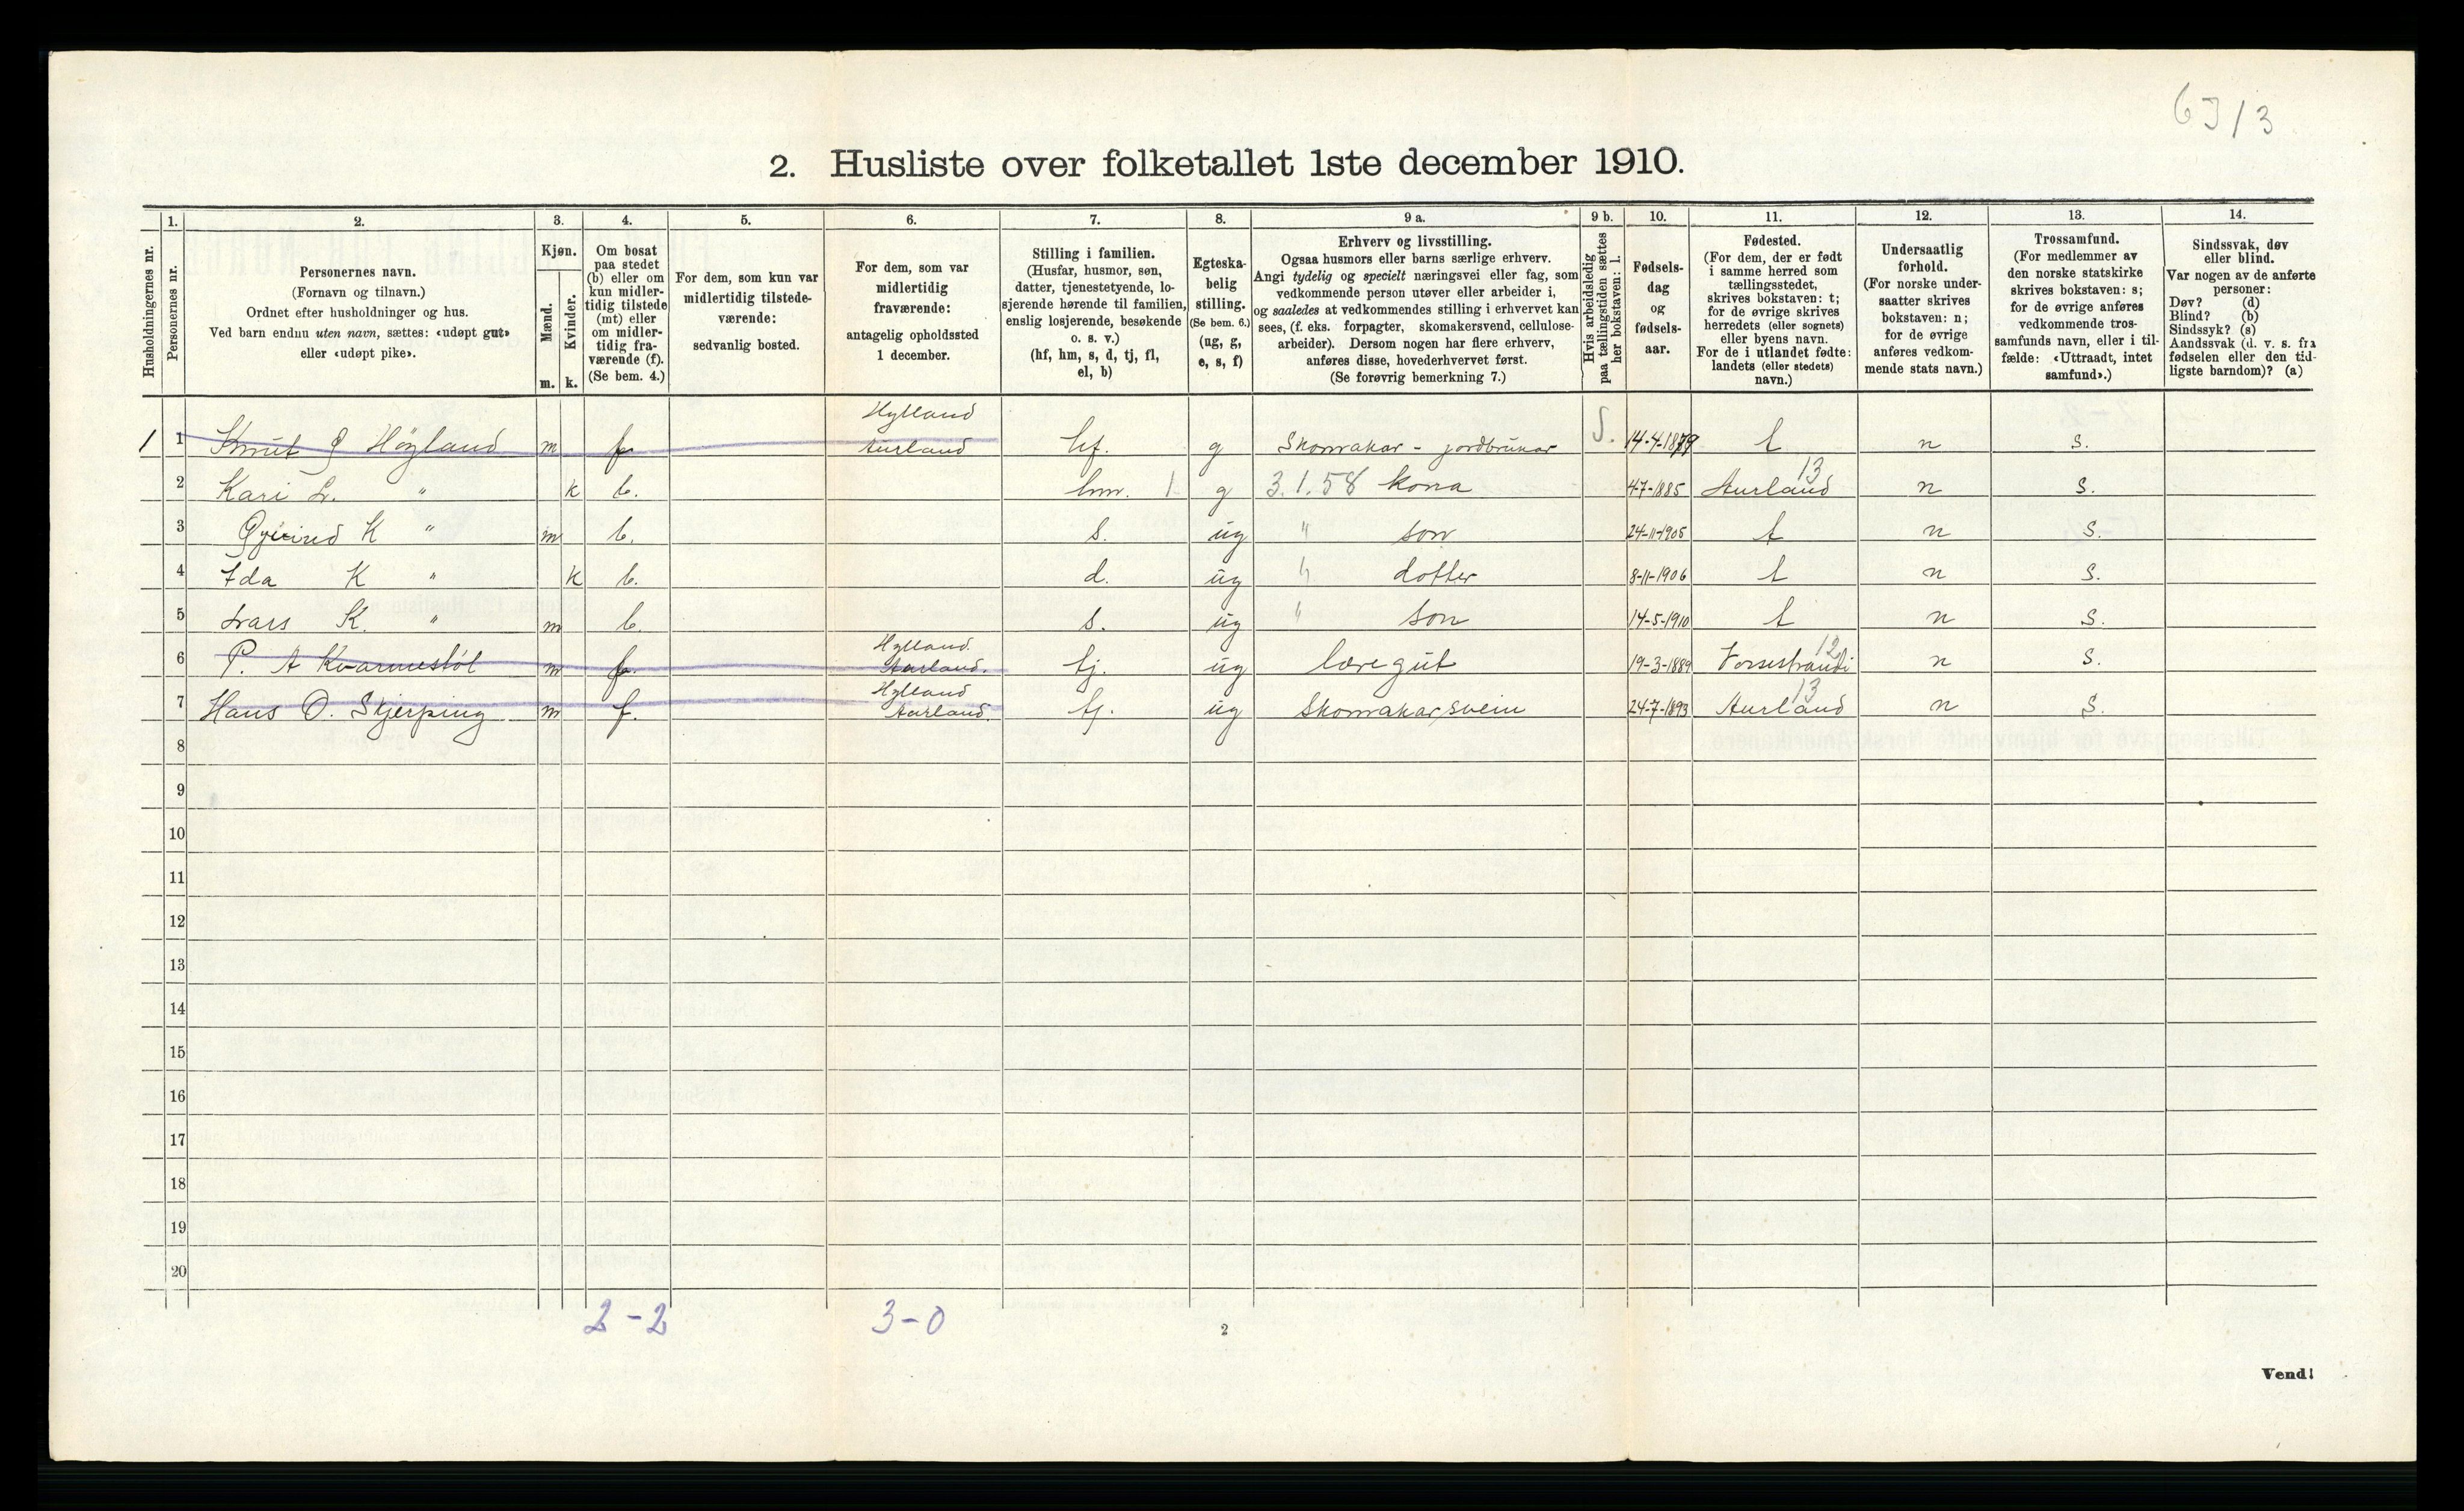 6313
2. Husliste over folketallet 1ste december 1910.
Husholdningernes nr.
1. Personernes nr.
2. Personernes navn.
(Fornavn og tilnavn.)
Ordnet efter husholdninger og hus.
Ved barn endnu uten navn, sættes: «udøpt gut»
eller «udøpt pike».
3. Kjøn.
Mænd. m.
Kvinder. k.
4. Om bosat
paa stedet
(b) eller om
kun midler-
tidig tilstede
(mt) eller
om midler-
tidig fra-
værende (f).
(Se bem. 4.)
5. For dem, som kun var
midlertidig tilstede-
værende:
sedvanlig bosted.
6. For dem, som var
midlertidig
fraværende:
antagelig opholdssted
1 december.
7. Stilling i familien.
(Husfar, husmor, søn,
datter, tjenestetyende, lo-
sjerende hørende til familien,
enslig losjerende, besøkende
o. s. v.)
(hf, hm, s, d, tj, fl,
el, b)
8. Egteska-
belig
stilling.
(Se bem. 6.)
(ug, g,
e, s, f)
9 a. Erhverv og livsstilling.
Ogsaa husmors eller barns særlige erhverv.
Angi tydelig og specielt næringsvei eller fag, som
vedkommende person utøver eller arbeider i,
og saaledes at vedkommendes stilling i erhvervet kan
sees, (f. eks. forpagter, skomakersvend, cellulose-
arbeider). Dersom nogen har flere erhverv,
anføres disse, hovederhvervet først.
(Se forøvrig bemerkning 7.)
9 b. Hvis arbeidsledig
paa tællingstiden sættes
her bokstaven: l.
10. Fødsels-
dag
og
fødsels-
aar.
11. Fødested.
(For dem, der er født
i samme herred som
tællingsstedet,
skrives bokstaven: t;
for de øvrige skrives
herredets (eller sognets)
eller byens navn.
For de i utlandet fødte:
landets (eller stedets)
navn.)
12. Undersaatlig
forhold.
(For norske under-
saatter skrives
bokstaven: n;
for de øvrige
anføres vedkom-
mende stats navn.)
13. Trossamfund.
(For medlemmer av
den norske statskirke
skrives bokstaven: s;
for de øvrige anføres
vedkommende tros-
samfunds navn, eller i til-
fælde: «Uttraadt, intet
samfund».)
14. Sindssvak, døv
eller blind.
Var nogen av de anførte
personer:
Døv? (d)
Blind? (b)
Sindssyk? (s)
Aandssvak (d. v. s. fra
fødselen eller den tid-
ligste barndom)? (a)
Hylland
1 1 Knut G Höyland m f Aurland hf. g Skomakar - jordbrukar S. 14-4-1879 t n s.
13
2 Kari L. " k b. hm. 1 g 3.1.58 kona 4-7-1885 Aurland n s.
3 K " m b. s. ug " son 24-11-1905 t n s.
4 Ida K " k b. d. ug " dotter 8-11-1906 t n s.
5 Lars K. " m b. s. ug " son 14-5-1910 t n s.
Hylland 12
6 P. A Kvarmestöl m f. Aurland. tj. ug læregut 19-3-1889 Vossestrandi n s.
Hylland 13
7 Hans O. Skjerping m f. Aurland. tj. ug Skomakarsvein 24-7-1893 Aurland n s.
8
9
10
11
12
13
14
15
16
17
18
19
20
2-2 3-0
2
Vend!